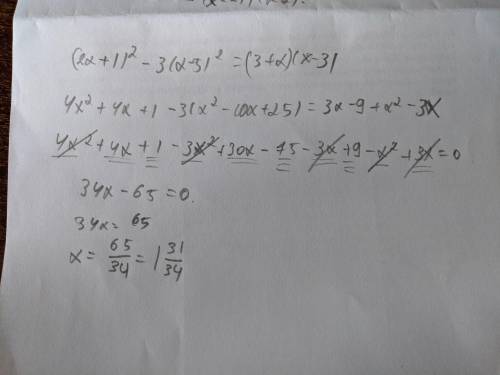 (2x+1)² - 3(x-3)² = (3+x)(x-3)
4x² + 4x + 1 - 3(x² - 10x + 25) = 3x - 9 + x² - 3x
4x² + 4x + 1 - 3x² + 30x - 75 - 3x + 9 - x² + 3x = 0
34x - 65 = 0.
34x = 65
x = 65/34 = 1 31/34